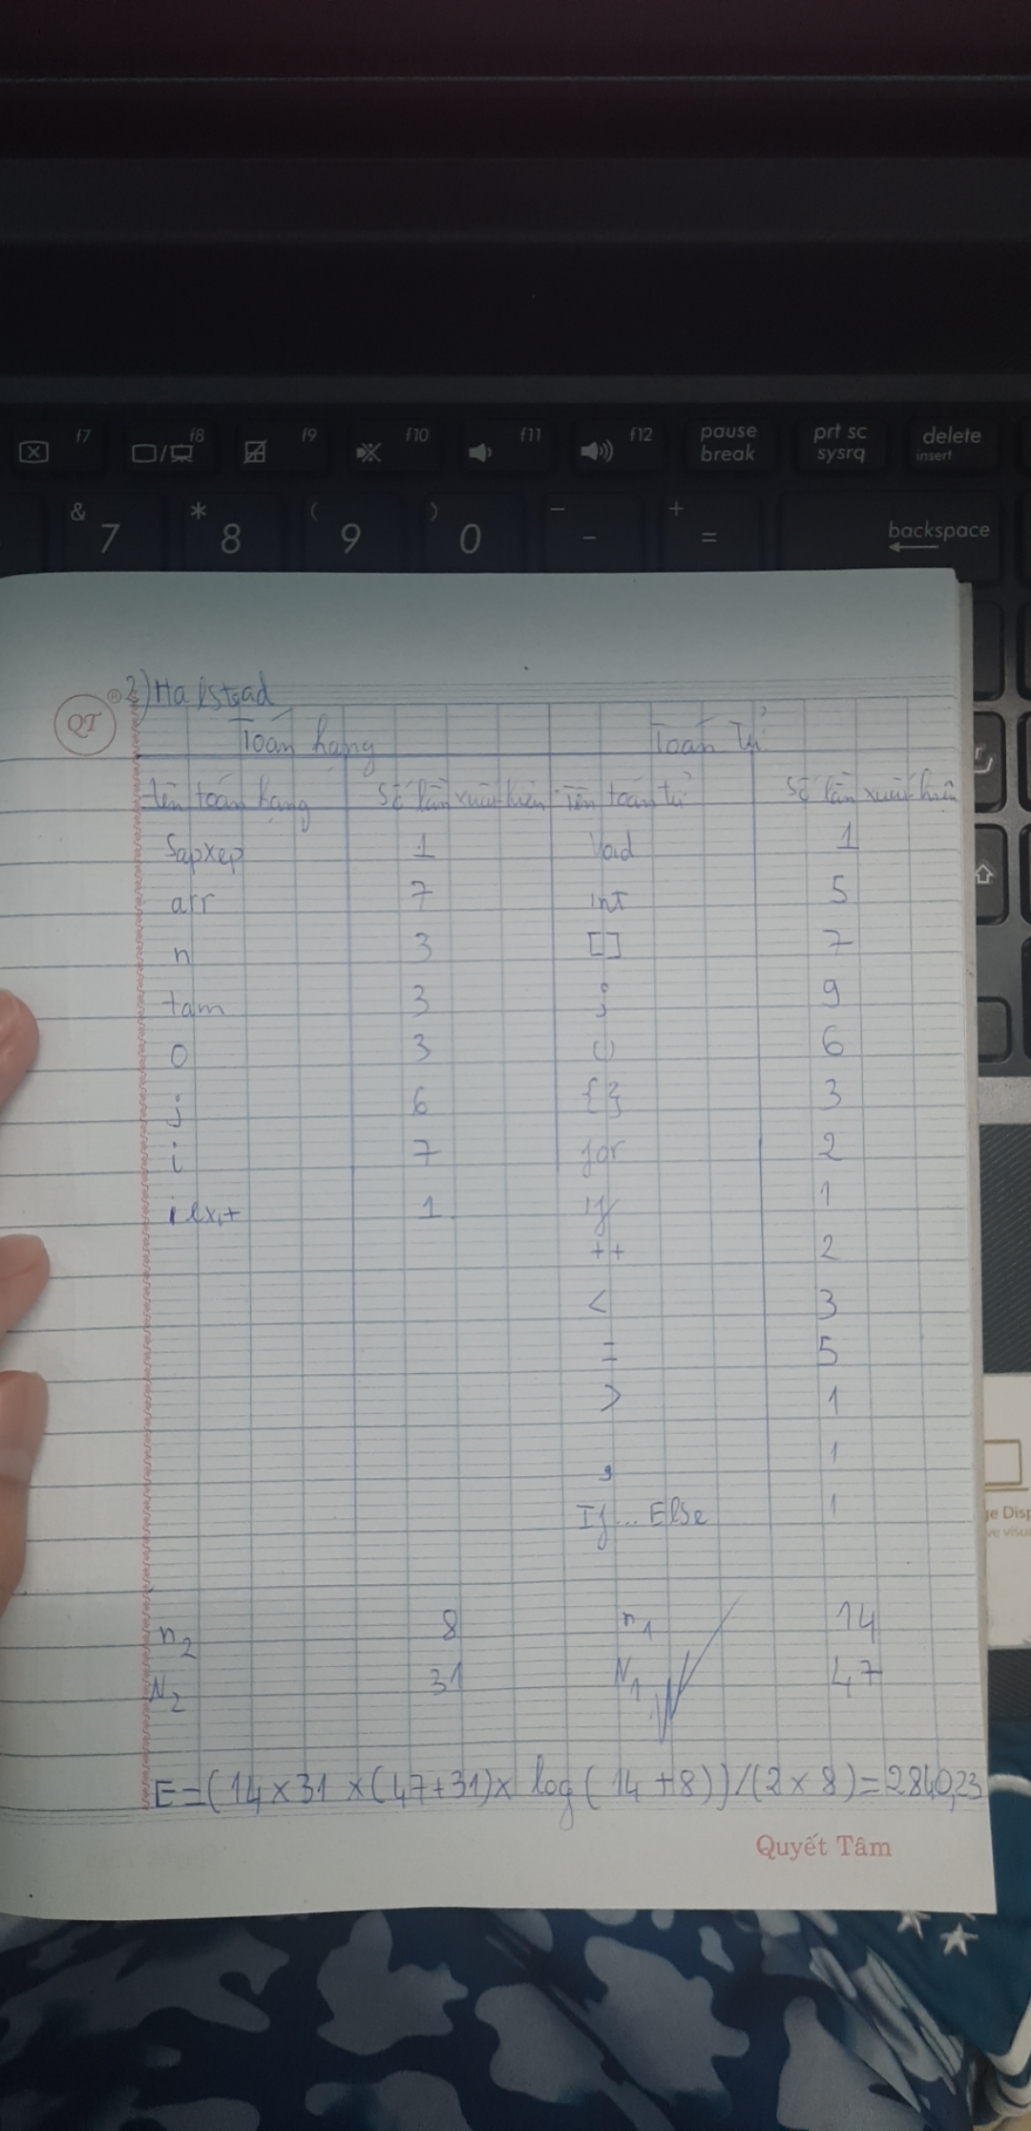 f7 f8 f9 f10 f11 f12 pause break prt sc sysrq delete insert
& 7 * 8 ( 9 ) 0 _ - + = backspace
QT
2) Halstead
Toán hạng Toán Tử
tên toán hạng Số lần xuất hiện Tên toán tử Số lần xuất hiện
Sapxep 1 Void 1
arr 7 int 5
n 3 [] 7
tam 3 ; 9
0 3 () 6
j 6 {} 3
i 7 for 2
exit 1 if 1
++ 2
< 3
= 5
> 1
, 1
If... Else 1
n2 8 n1 14
N2 31 N1 47
E=(14×31×(47+31)×log(14+8))/(2×8)=2840,23
Quyết Tâm